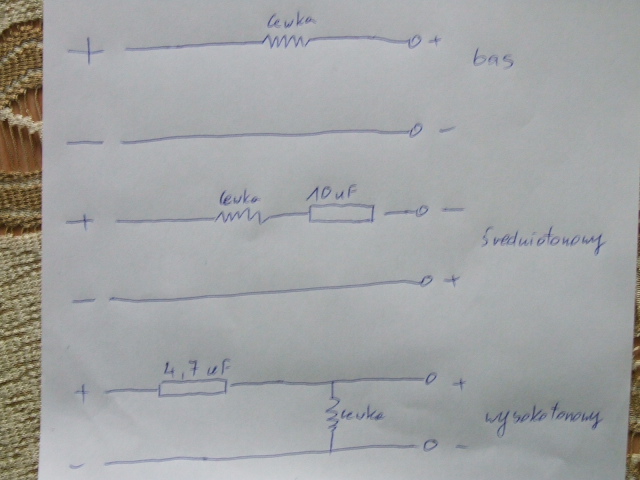 cewka
+ +
bas
- -
cewka 10uF
+ -
średniotonowy
- +
4,7 uF
+ +
cewka
wysokotonowy
- -